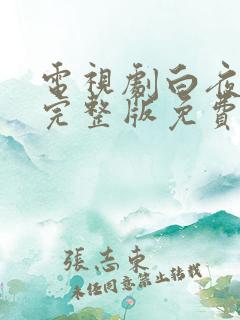 電視劇白夜
完整版免費
張志東
未經同意禁止轉載